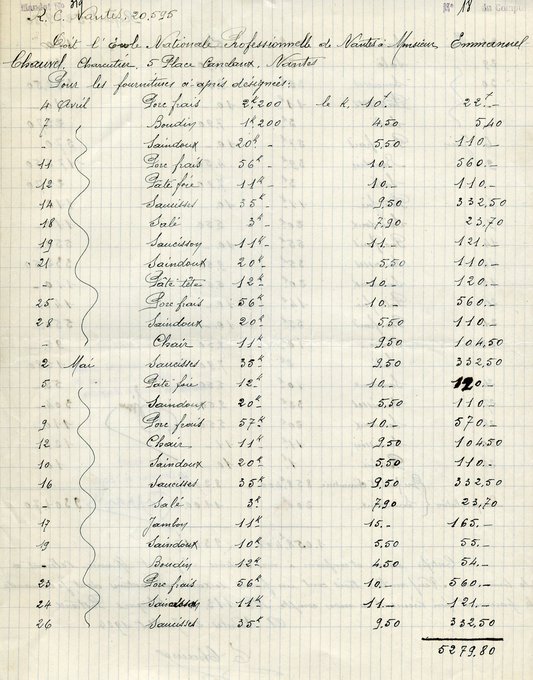 Mandat No 319
No 18 du Compte
R. C. Nantes, 20,595
Doit l'École Nationale Professionnelle de Nantes à Monsieur Emmanuel
Chauvel, Charcutier, 5 Place Canclaux, Nantes
Pour les fournitures ci après désignées:
4 Avril Porc frais 2k,200 le k. 10f- 22f-
7 Boudin 1k200 4,50 5,40
- Saindoux 20k- 5,50 110.-
11 Porc frais 56k- 10.- 560.-
12 Pâté foie 11k- 10.- 110.-
14 Saucisses 35k- 9,50 332,50
18 Salé 3k- 7,90 23,70
19 Saucisson 11k- 11.- 121.-
21 Saindoux 20k- 5,50 110.-
- Pâté tête 12k- 10.- 120.-
25 Porc frais 56k- 10.- 560.-
28 Saindoux 20k- 5,50 110.-
- Chair 11k- 9,50 104,50
2 Mai Saucisses 35k- 9,50 332,50
5 Pâté foie 12k- 10.- 120.-
- Saindoux 20k- 5,50 110.-
9 Porc frais 57k- 10.- 570.-
12 Chair 11k- 9,50 104,50
10 Saindoux 20k- 5,50 110.-
16 Saucisses 35k- 9,50 332,50
- Salé 3k 7,90 23,70
17 Jambon 11k- 15.- 165.-
19 Saindoux 10k- 5,50 55.-
- Boudin 12k- 4,50 54.-
23 Porc frais 56k- 10.- 560.-
24 Saucisson 11k- 11.- 121.-
26 Saucisses 35k- 9,50 332,50
5279,80